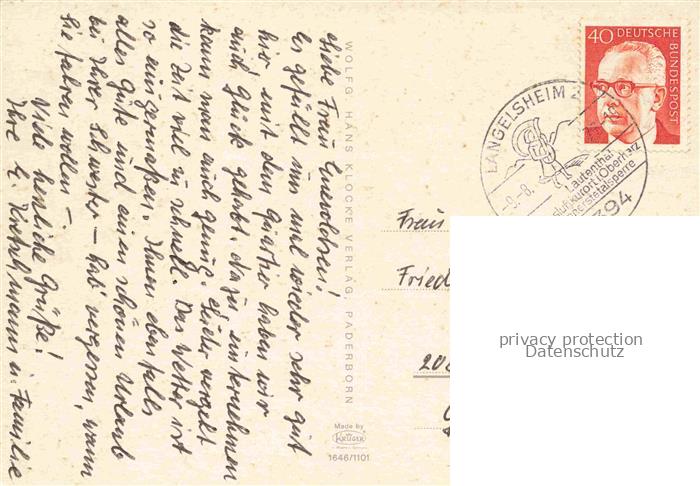 Liebe Frau
Es gefällt uns mal wieder sehr gut
hier mit dem Quartier haben wir
auch Glück gehabt. Dazu, unternehmen
kann man auch genug. Leider vergeht
die Zeit viel zu schnell. Das Wetter ist
so einigermaßen. Ihnen ebenfalls
alles Gute und einen schönen Urlaub
bei Ihrer Schwester – hab' vergessen, wann
Sie fahren wollen –.
Viele herzliche Grüße!
Ihre u. Familie
WOLFG. HANS KLOCKE VERLAG, PADERBORN
Made by
KRÜGER
1646/1101
40 DEUTSCHE
BUNDESPOST
LANGELSHEIM 2
Lautenthal
Luftkurort i. Oberharz
Innerstetalsperre
394
Frau
Fried
20
privacy protection
Datenschutz